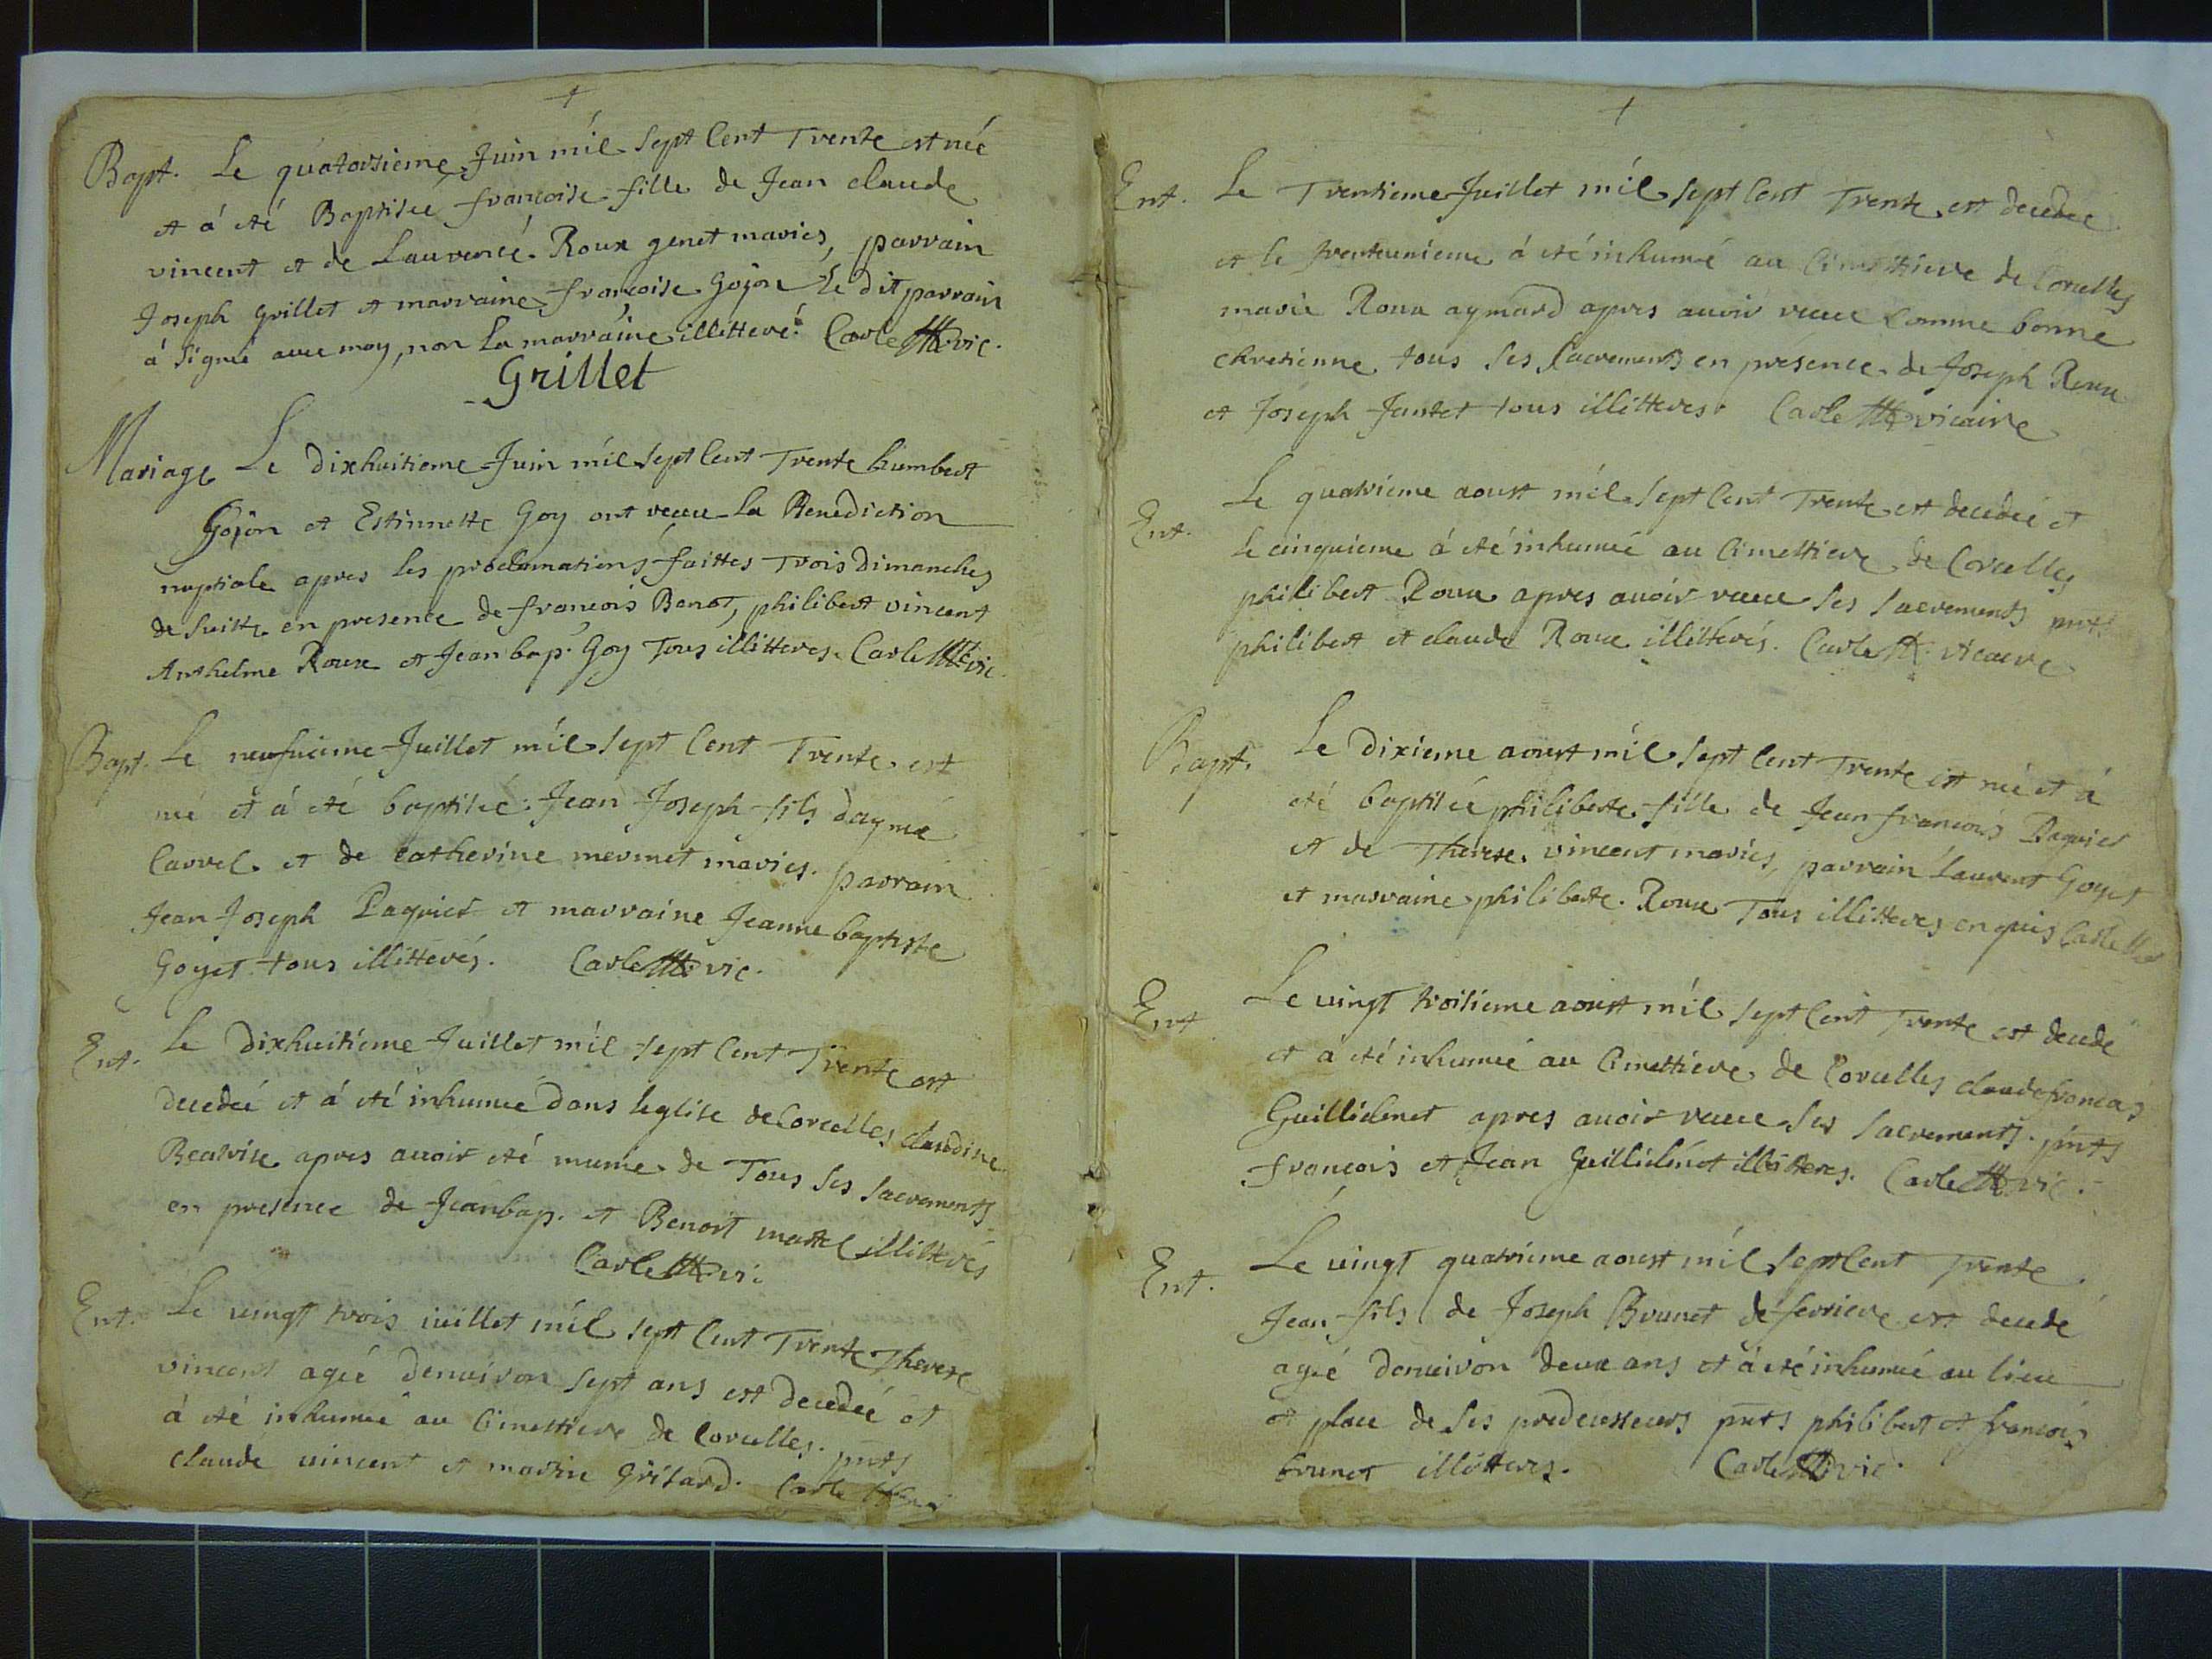 Bapt. Le quatorsieme Juin mil sept Cent Trente est née
et á eté Baptisée françoise fille de Jean claude
vincent et de Laurence Roux genet mariés, parrain
Joseph Grillet et marraine françoise Gojon le dit parrain
á signé avec moy, non la marraine illitteré. Carle vic.
Grillet
Mariage Le dixhuitieme Juin mil sept Cent Trente humbert
Gojon et Estiennette Goy ont receu la Benediction
nuptiale apres les proclamations faittes Trois dimanches
de suitte en presence de françois Benot, philibert vincent
Anthelme Roux et Jean bap. Goy Tous illitteres. Carle vic
Bapt. Le neufvieme Juillet mil sept Cent Trente est
né et á eté baptisé Jean Joseph fils daymé
Carrel et de catherine mermet mariés. parrain
Jean Joseph Paquiet et marraine Jeanne baptiste
Goyet tous illitterés. Carle vic.
Ent. Le dixhuitieme Juillet mil sept Cent Trente est
decedeé et á eté inhumeé dans leglise de Corcelles claudine
Beatrise apres auoir eté munie de Tous ses sacrements
en presence de Jeanbap. et Benoit martel illitterés
Carle vi
Ent. Le vingt trois juillet mil sept Cent Trente Therese
vincent ageé denuiron sept ans est decedeé et
á eté inhumeé au Cimettiere de Corcelles. pnts
claude vincent et Carle
Ent. Le Trentieme Juillet mil sept Cent Trente est decedee
et le trenteunieme á eté inhumé au Cimettiere de Corcelles
marie Roux aymard apres auoir receu Comme bonne
chretienne tous ses sacrements en presence de Joseph Roux
et Joseph Jantet tous illitteres. Carle vicaire
Ent. Le quatrieme aoust mil sept Cent Trente est decedeé et
le cinquieme á eté inhumeé au Cimettiere de Corcelles
philibert Roux apres auoir receu ses sacrements pnts
philibert et claude Roux illitterés. Carle vicaire
Bapt. Le dixieme aoust mil sept Cent Trente est né et á
eté baptiseé philiberte fille de Jean françois Paquiet
et de Therese vincent mariés, parrain Laurent Goyet
et marraine philiberte Roux Tous illitteres enquis Carle
Ent Le vingt troisieme aoust mil sept Cent Trente est decedé
et á eté inhumeé au Cimettiere de Corcelles claude francois
Guillielmet apres auoir receu ses sacrements. pnts
françois et Jean Guillielmet illitteres. Carle vic.
Ent. Le vingt quatrieme aoust mil sept Cent Trente
Jean fils de Joseph Brunet de ferriere est decedé
ageé denuiron deux ans et á eté inhumeé au lieu
et place de ses predecesseurs pnts philibert et françois
brunet illitteres. Carle vic.